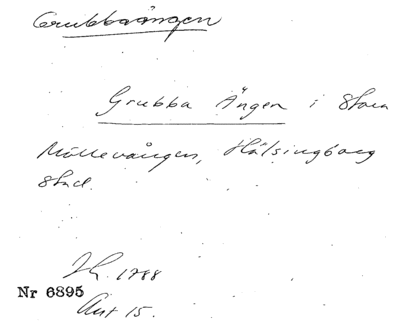 Grubbaängen
Grubba Ängen i Stora
Möllevången, Hälsingborg
Stad.
1788
Nr 6895
Akt 15.